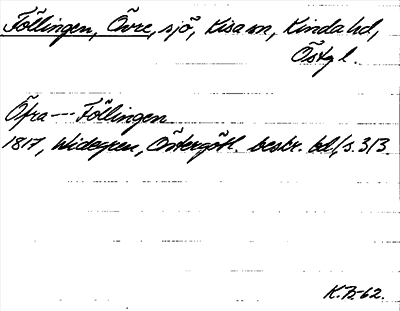 Föllingen, Övre, sjö, Kisa sn, Kinda hd,
Östgl.
Öfra --- Föllingen
1817, Widegren, Östergötl. beskr. bd 1, s. 313.
K.B.-62.